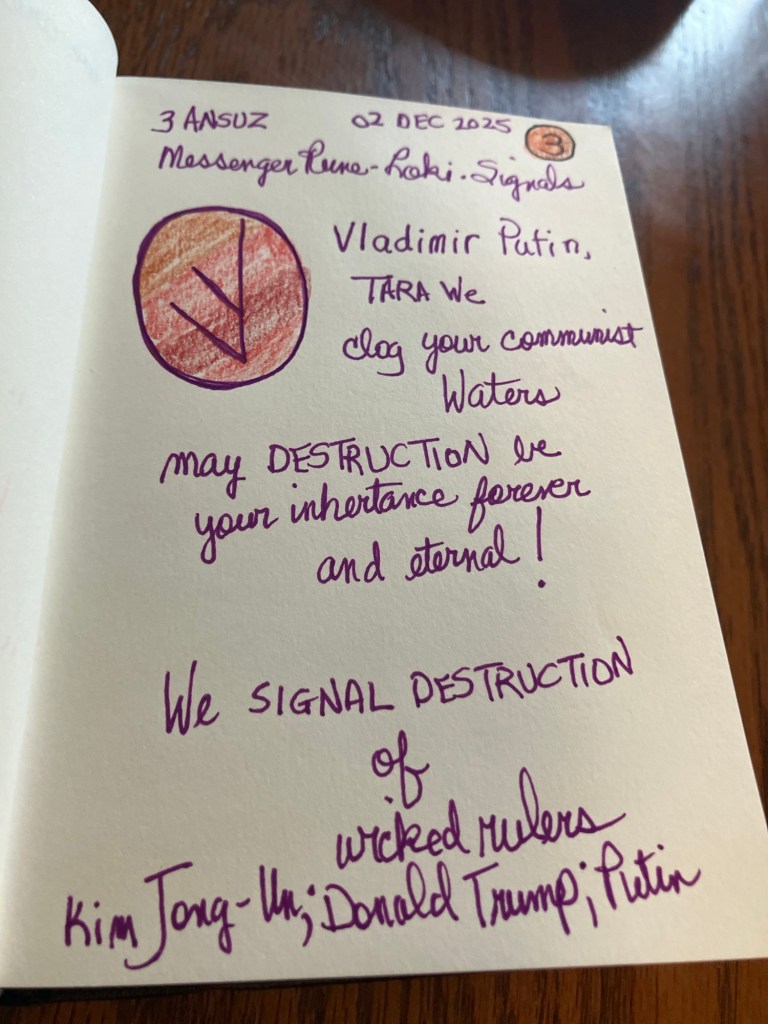 3 ANSUZ 02 DEC 2025 3
Messenger Rune - Loki. Signals
Vladimir Putin,
TARA We
clog your communist
Waters
may DESTRUCTION be
your inhertance forever
and eternal!
We SIGNAL DESTRUCTION
of
wicked rulers
Kim Jong-Un; Donald Trump; Putin